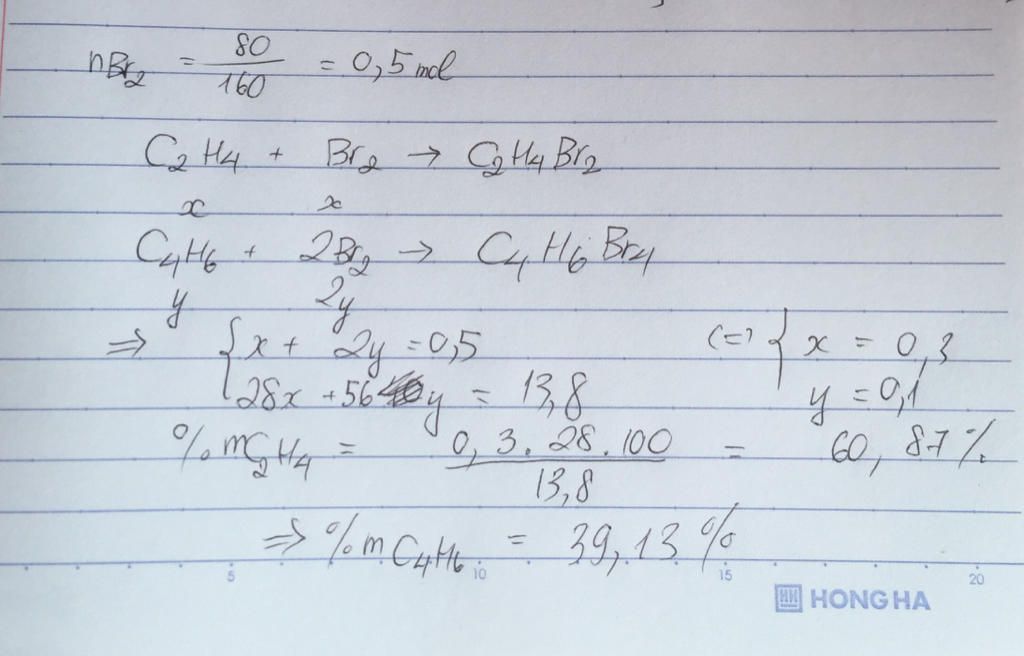 nBr₂ = 80/160 = 0,5 mol
C₂H₄ + Br₂ → C₂H₄Br₂
x x
C₄H₆ + 2Br₂ → C₄H₆Br₄
y 2y
⇒ { x + 2y = 0,5 (=) { x = 0,3
28x + 56 y = 13,8 y = 0,1
%mC₂H₄ = 0,3.28.100/13,8 = 60,87%
⇒ %mC₄H₆ = 39,13%
5 10 15 20
HONG HA